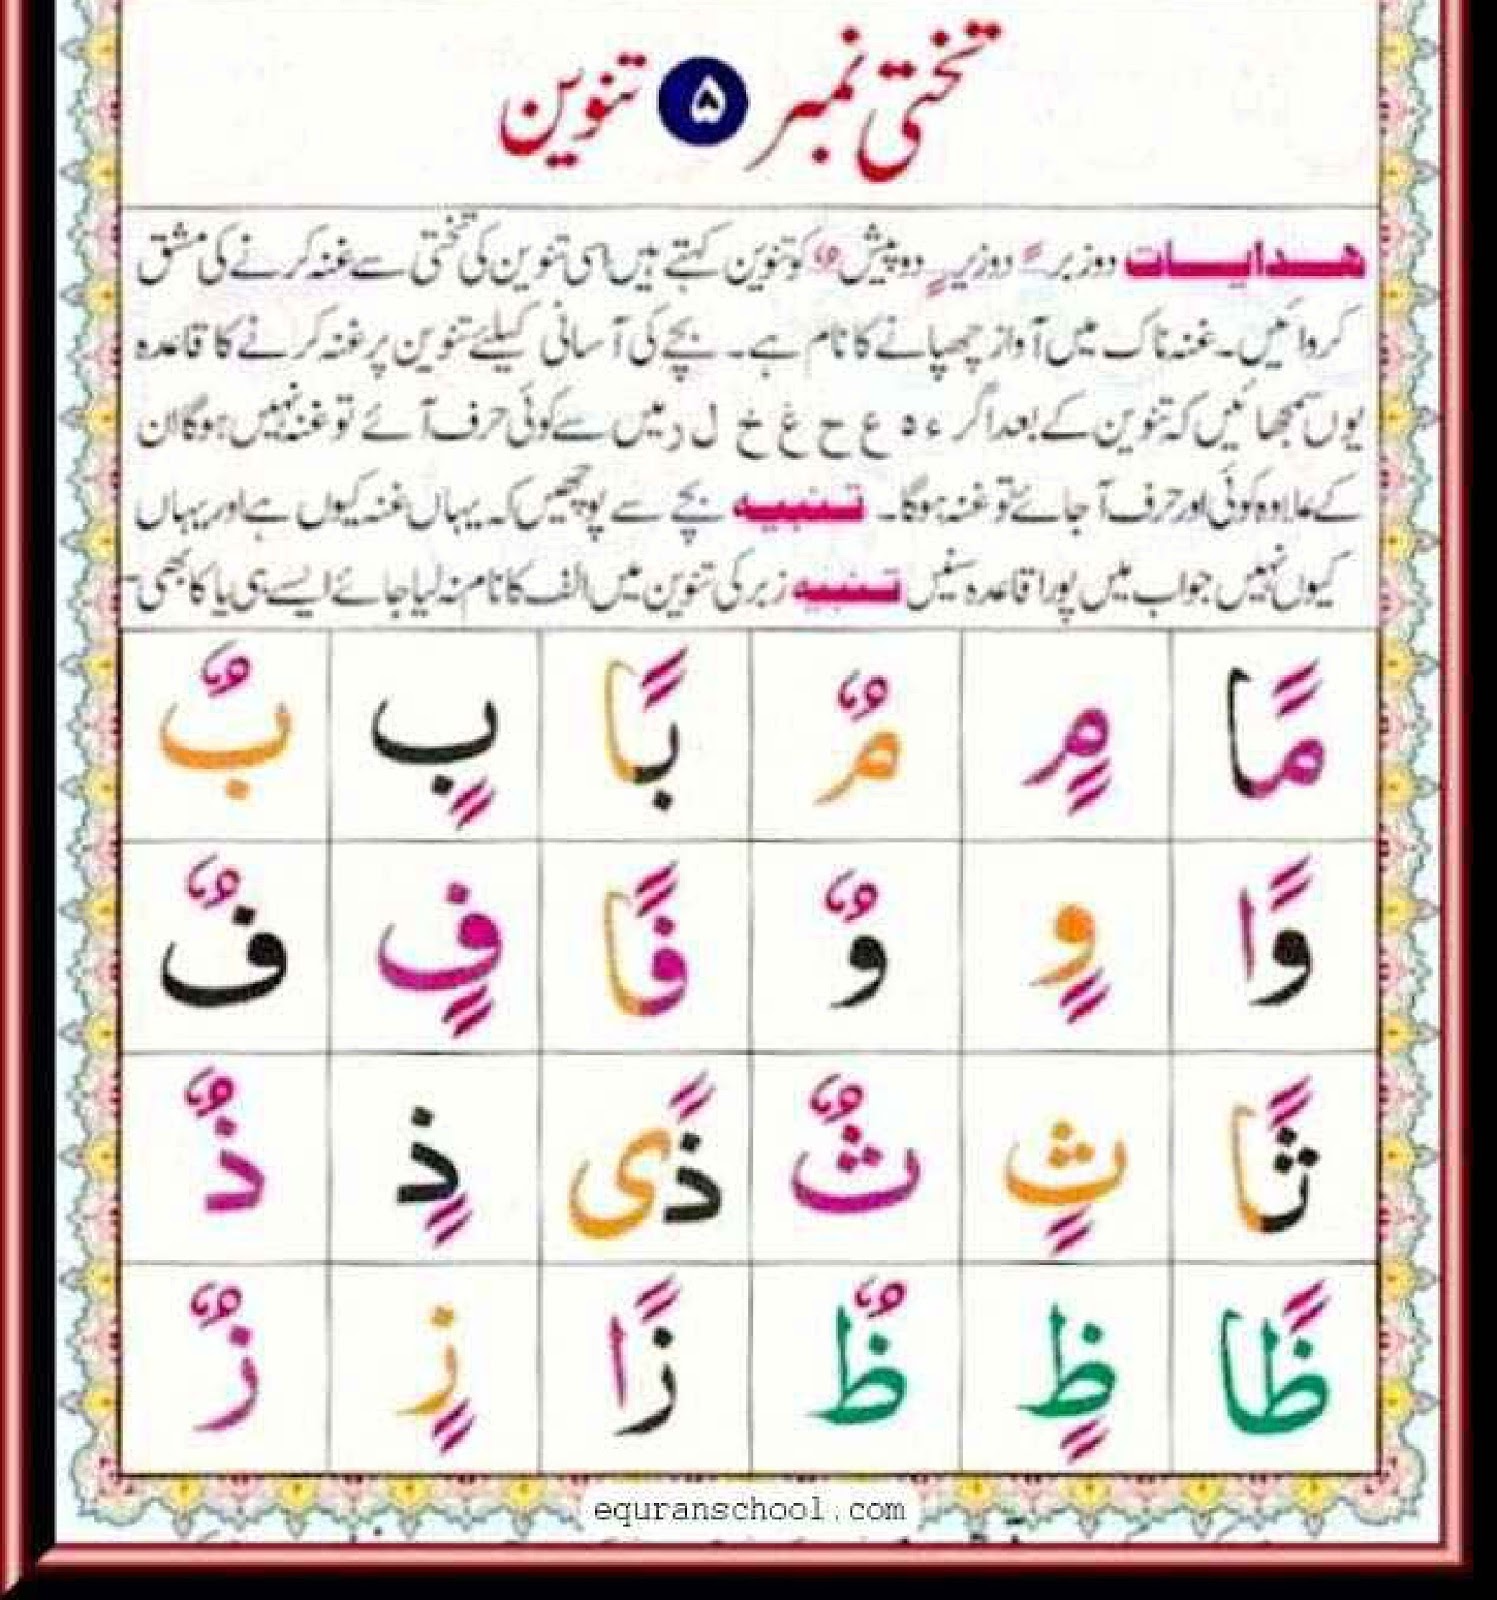 تختی نمبر ۵ تنوین
ھدایات دوزبر ً دوزیر ٍ دوپیش ٌ کو تنوین کہتے ہیں اسی تنوین کی تختی سے غنہ کرنے کی مشق
کروائیں۔ غنہ ناک میں آواز چھپانے کا نام ہے۔ بچے کی آسانی کیلئے تنوین پر غنہ کرنے کا قاعدہ
یوں سمجھائیں کہ تنوین کے بعد اگر ء ہ ع ح غ خ ل ر میں سے کوئی حرف آئے تو غنہ نہیں ہوگا ان
کے علاوہ کوئی اور حرف آ جائے تو غنہ ہوگا۔ تنبیہ بچے سے پوچھیں کہ یہاں غنہ کیوں ہے اور یہاں
کیوں نہیں جواب میں پورا قاعدہ سنیں تنبیہ زبر کی تنوین میں الف کا نام نہ لیا جائے ایسے ہی یا کا بھی۔
مًا مٍ مٌ بًا بٍ بٌ
وًا وٍ وٌ فًا فٍ فٌ
ثًا ثٍ ثٌ ذًی ذٍ ذٌ
ظًا ظٍ ظٌ زًا زٍ زٌ
equranschool.com